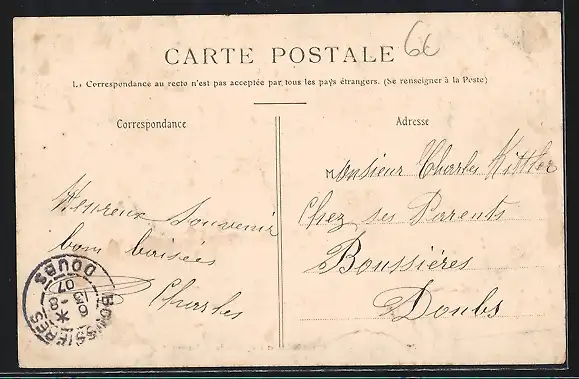 6c
CARTE POSTALE
La Correspondance au recto n'est pas acceptée par tous les pays étrangers. (Se renseigner à la Poste)
Correspondance
Heureux Souvenir
bons baisées
Charles
Adresse
Monsieur Charles Kittler
Chez ses Parents
Boussières
Doubs
BOUSSIERES
6
15 -8
07
DOUBS